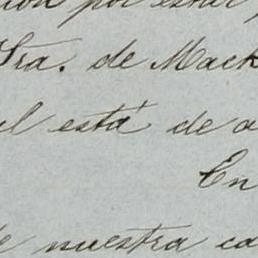 ion por estar
Sra. de Mack
el está de a
En
de nuestra ca